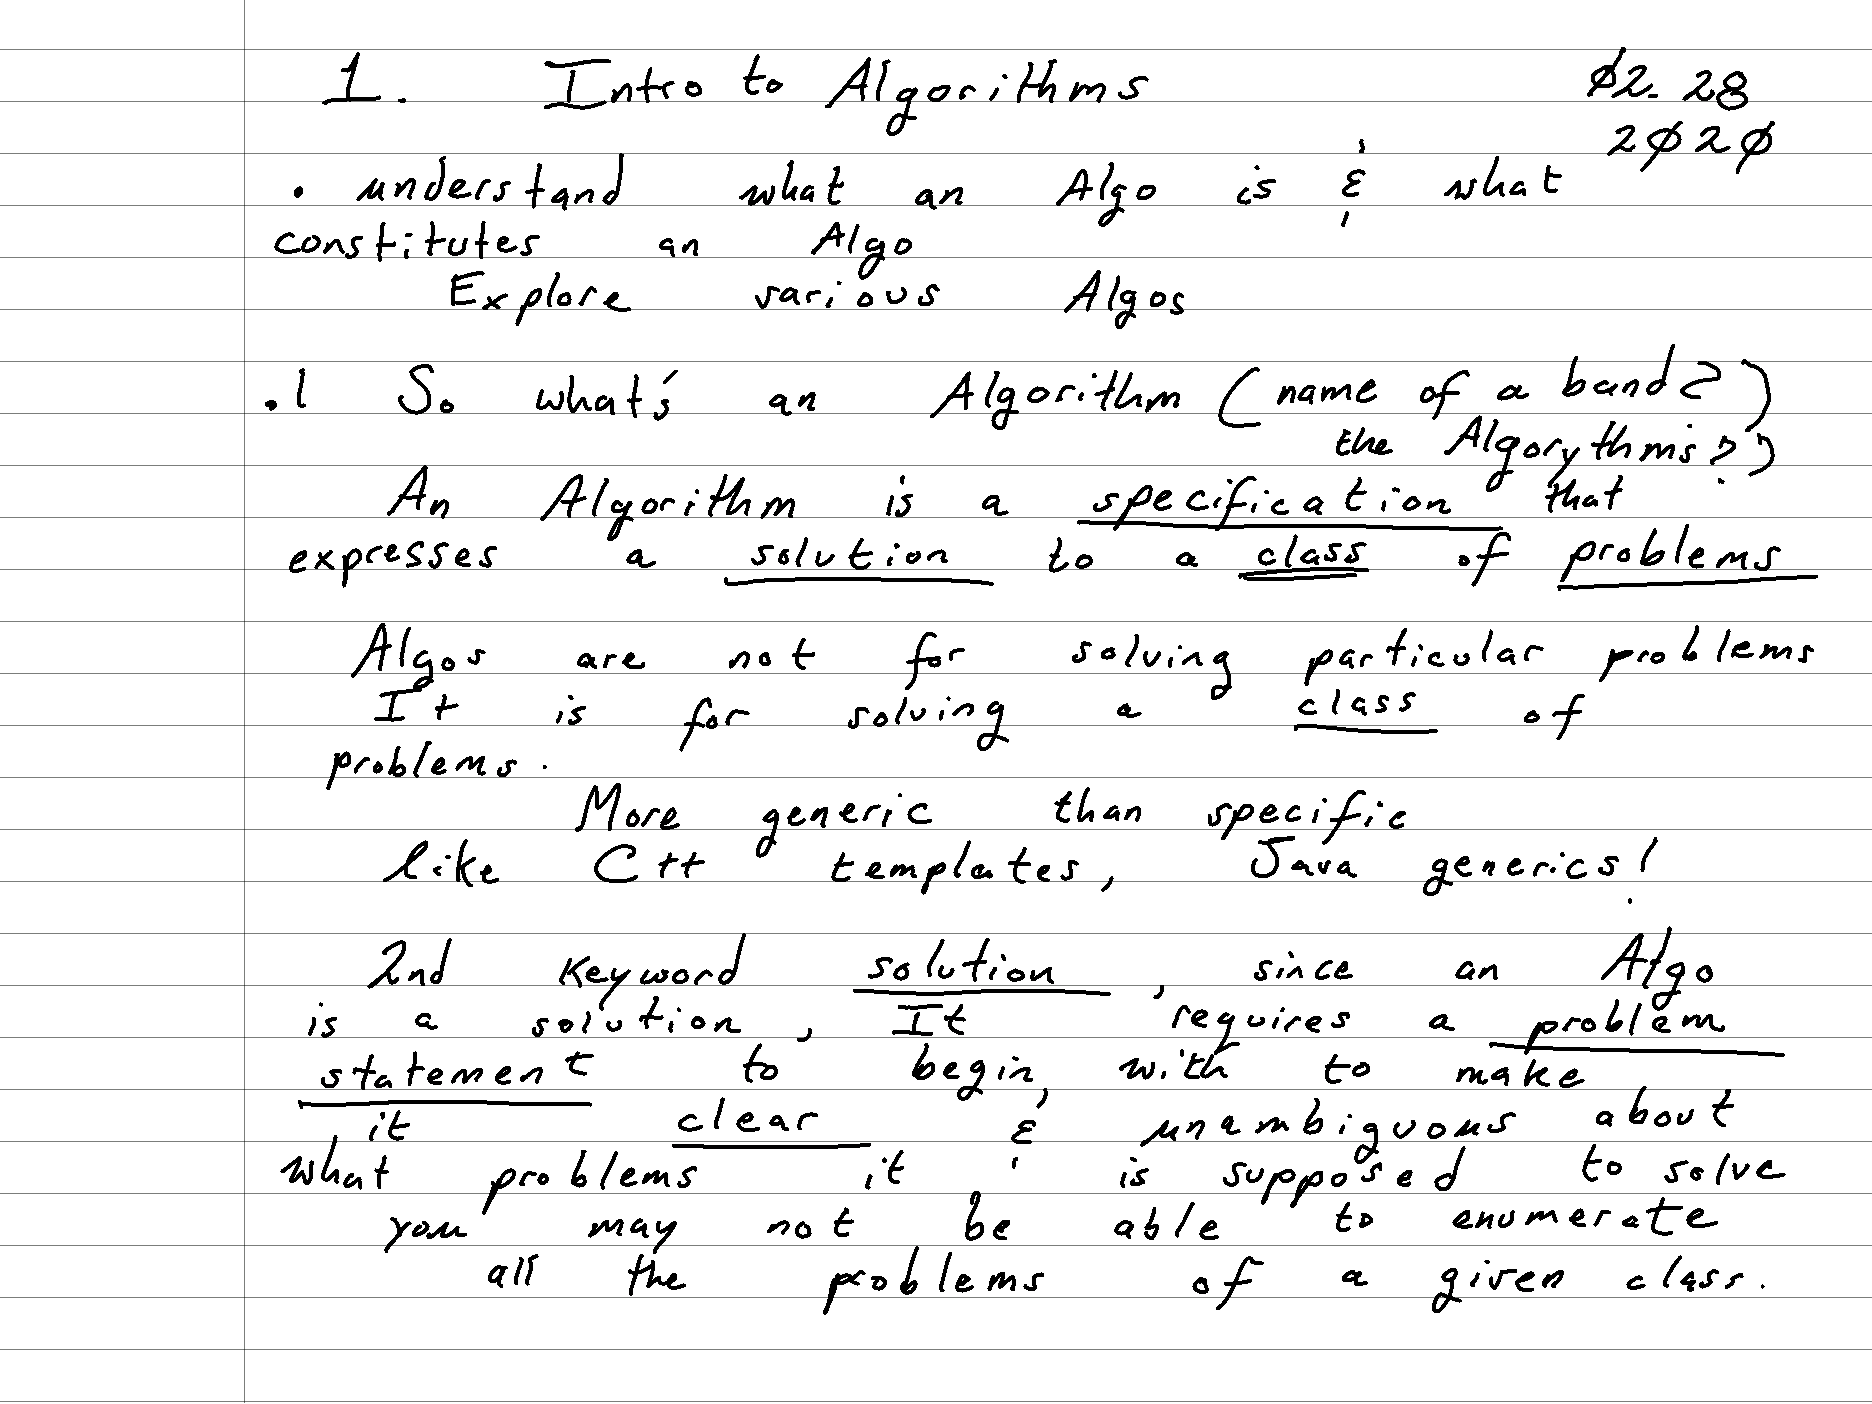 1. Intro to Algorithms 02-28
2020
• understand what an Algo is & what
constitutes an Algo
Explore various Algos
.1 So what's an Algorithm (name of a band?)
the Algorythms?)
An Algorithm is a specification that
expresses a solution to a class of problems
Algos are not for solving particular problems
It is for solving a class of
problems.
More generic than specific
like C++ templates, Java generics!
2nd keyword solution, since an Algo
is a solution, It requires a problem
statement to begin, with to make
it clear & unambiguous about
what problems it is supposed to solve
you may not be able to enumerate
all the problems of a given class.